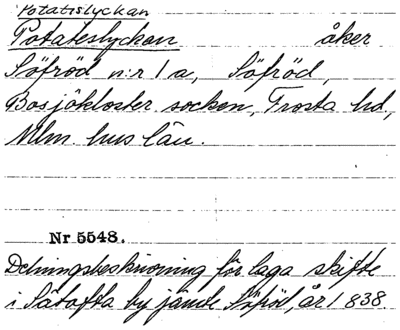 Potatislyckan
Potateslyckan åker
Söfröd n:r 1 a, Söfröd,
Bosjökloster socken, Frosta hd,
Mlm hus län.
Nr 5548.
Delningsbeskrivning för laga skifte
i Sätofta by jämte Söfröd, år 1838.